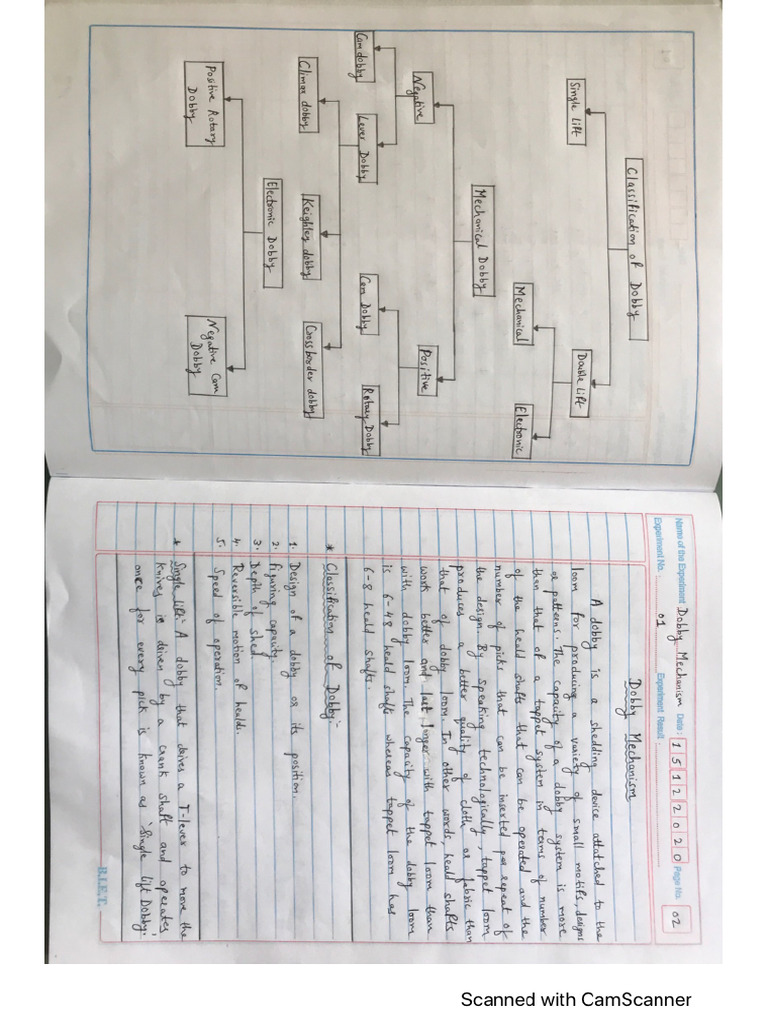 Classification of Dobby
Single Lift
Double Lift
Mechanical
Electronic
Mechanical Dobby
Negative
Positive
Cam dobby
Lever Dobby
Cam Dobby
Rotary Dobby
Climax dobby
Keighley dobby
Crossborder dobby
Electronic Dobby
Positive Rotary
Dobby
Negative Cam
Dobby
Name of the Experiment Dobby Mechanism Date: 15122020 Page No. 02
Experiment No. : 01 Experiment Result :
Dobby Mechanism
A dobby is a shedding device attatched to the
loom for producing a variety of small motifs, designs
or patterns. The capacity of a dobby system is more
than that of a tappet system in terms of number
of the heald shafts that can be operated and the
number of picks that can be inserted per repeat of
the design. By speaking technologically, tappet loom
produces a better quality of cloth or fabric than
that of dobby loom. In other words, heald shafts
work better and last longer with tappet loom than
with dobby loom. The capacity of the dobby loom
is 6-48 heald shafts whereas tappet loom has
6-8 heald shafts.
* Classification of Dobby:-
1. Design of a dobby or its position.
2. Figuring capacity.
3. Depth of shed
4. Reversible motion of healds.
5. Speed of operation.
* Single lift:- A dobby that drives a T-lever to move the
knives is driven by a crank shaft and operates
once for every pick is known as 'Single lift Dobby'.
B.I.E.T.
Scanned with CamScanner